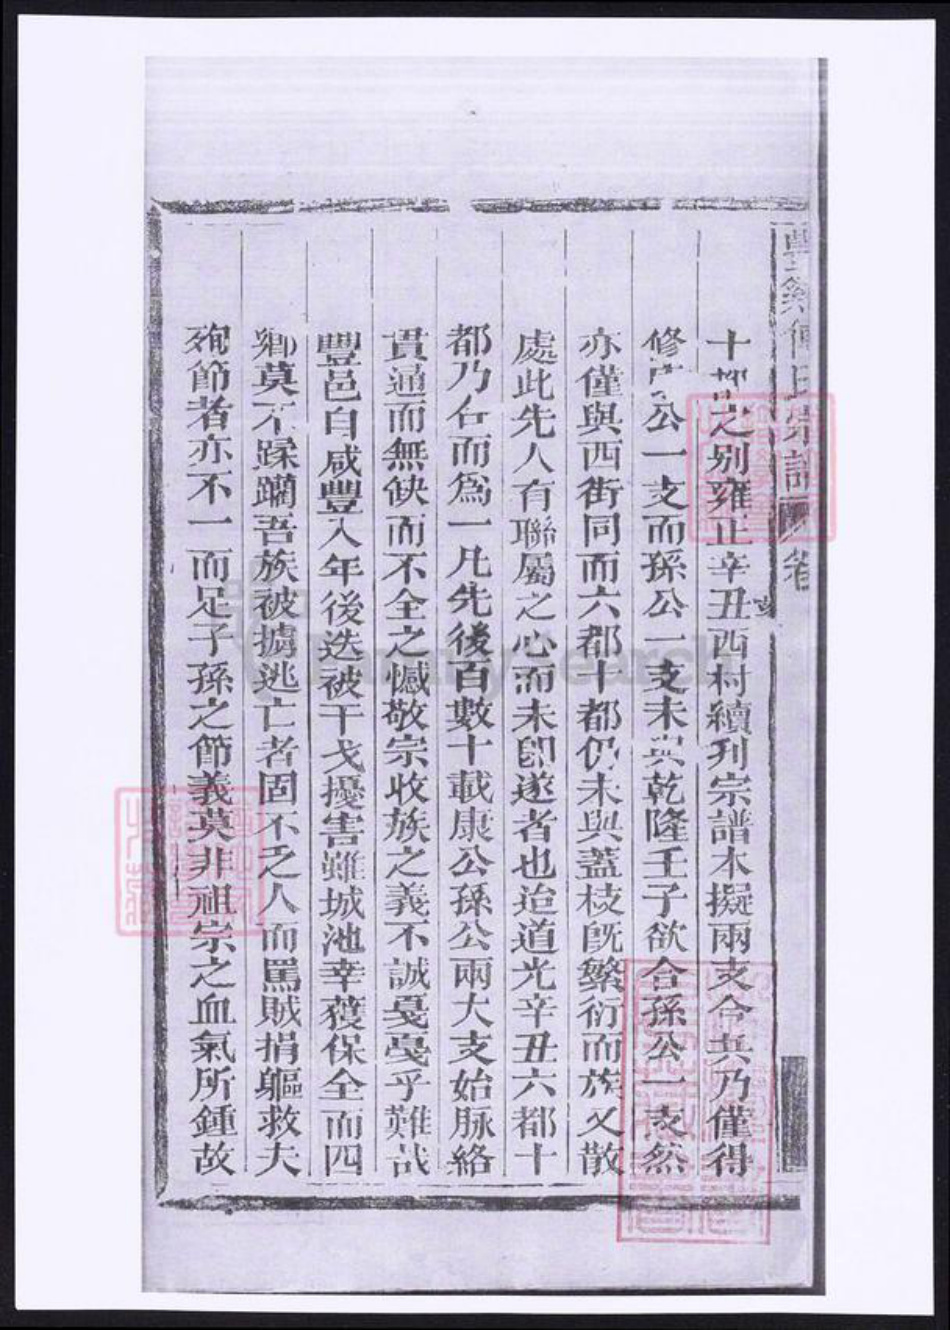 氏宗譜 卷
十都之別雍正辛丑西村續刋宗譜本擬兩支合共乃僅得
修康公一支而孫公一支未與乾隆壬子欲合孫公一支然
亦僅與西街同而六都十都仍未與葢枝旣繁衍而族又散
處此先人有聯屬之心而未卽遂者也迨道光辛丑六都十
都乃合而爲一凡先後百數十載康公孫公兩大支始脉絡
貫通而無缺而不全之憾敬宗收族之義不誠戞戞乎難哉
豐邑自咸豐八年後迭被干戈擾害雖城池幸獲保全而四
鄉莫不蹂躪吾族被擄逃亡者固不乏人而罵賊捐軀救夫
殉節者亦不一而足子孫之節義莫非祖宗之血氣所鍾故
FamilySearch